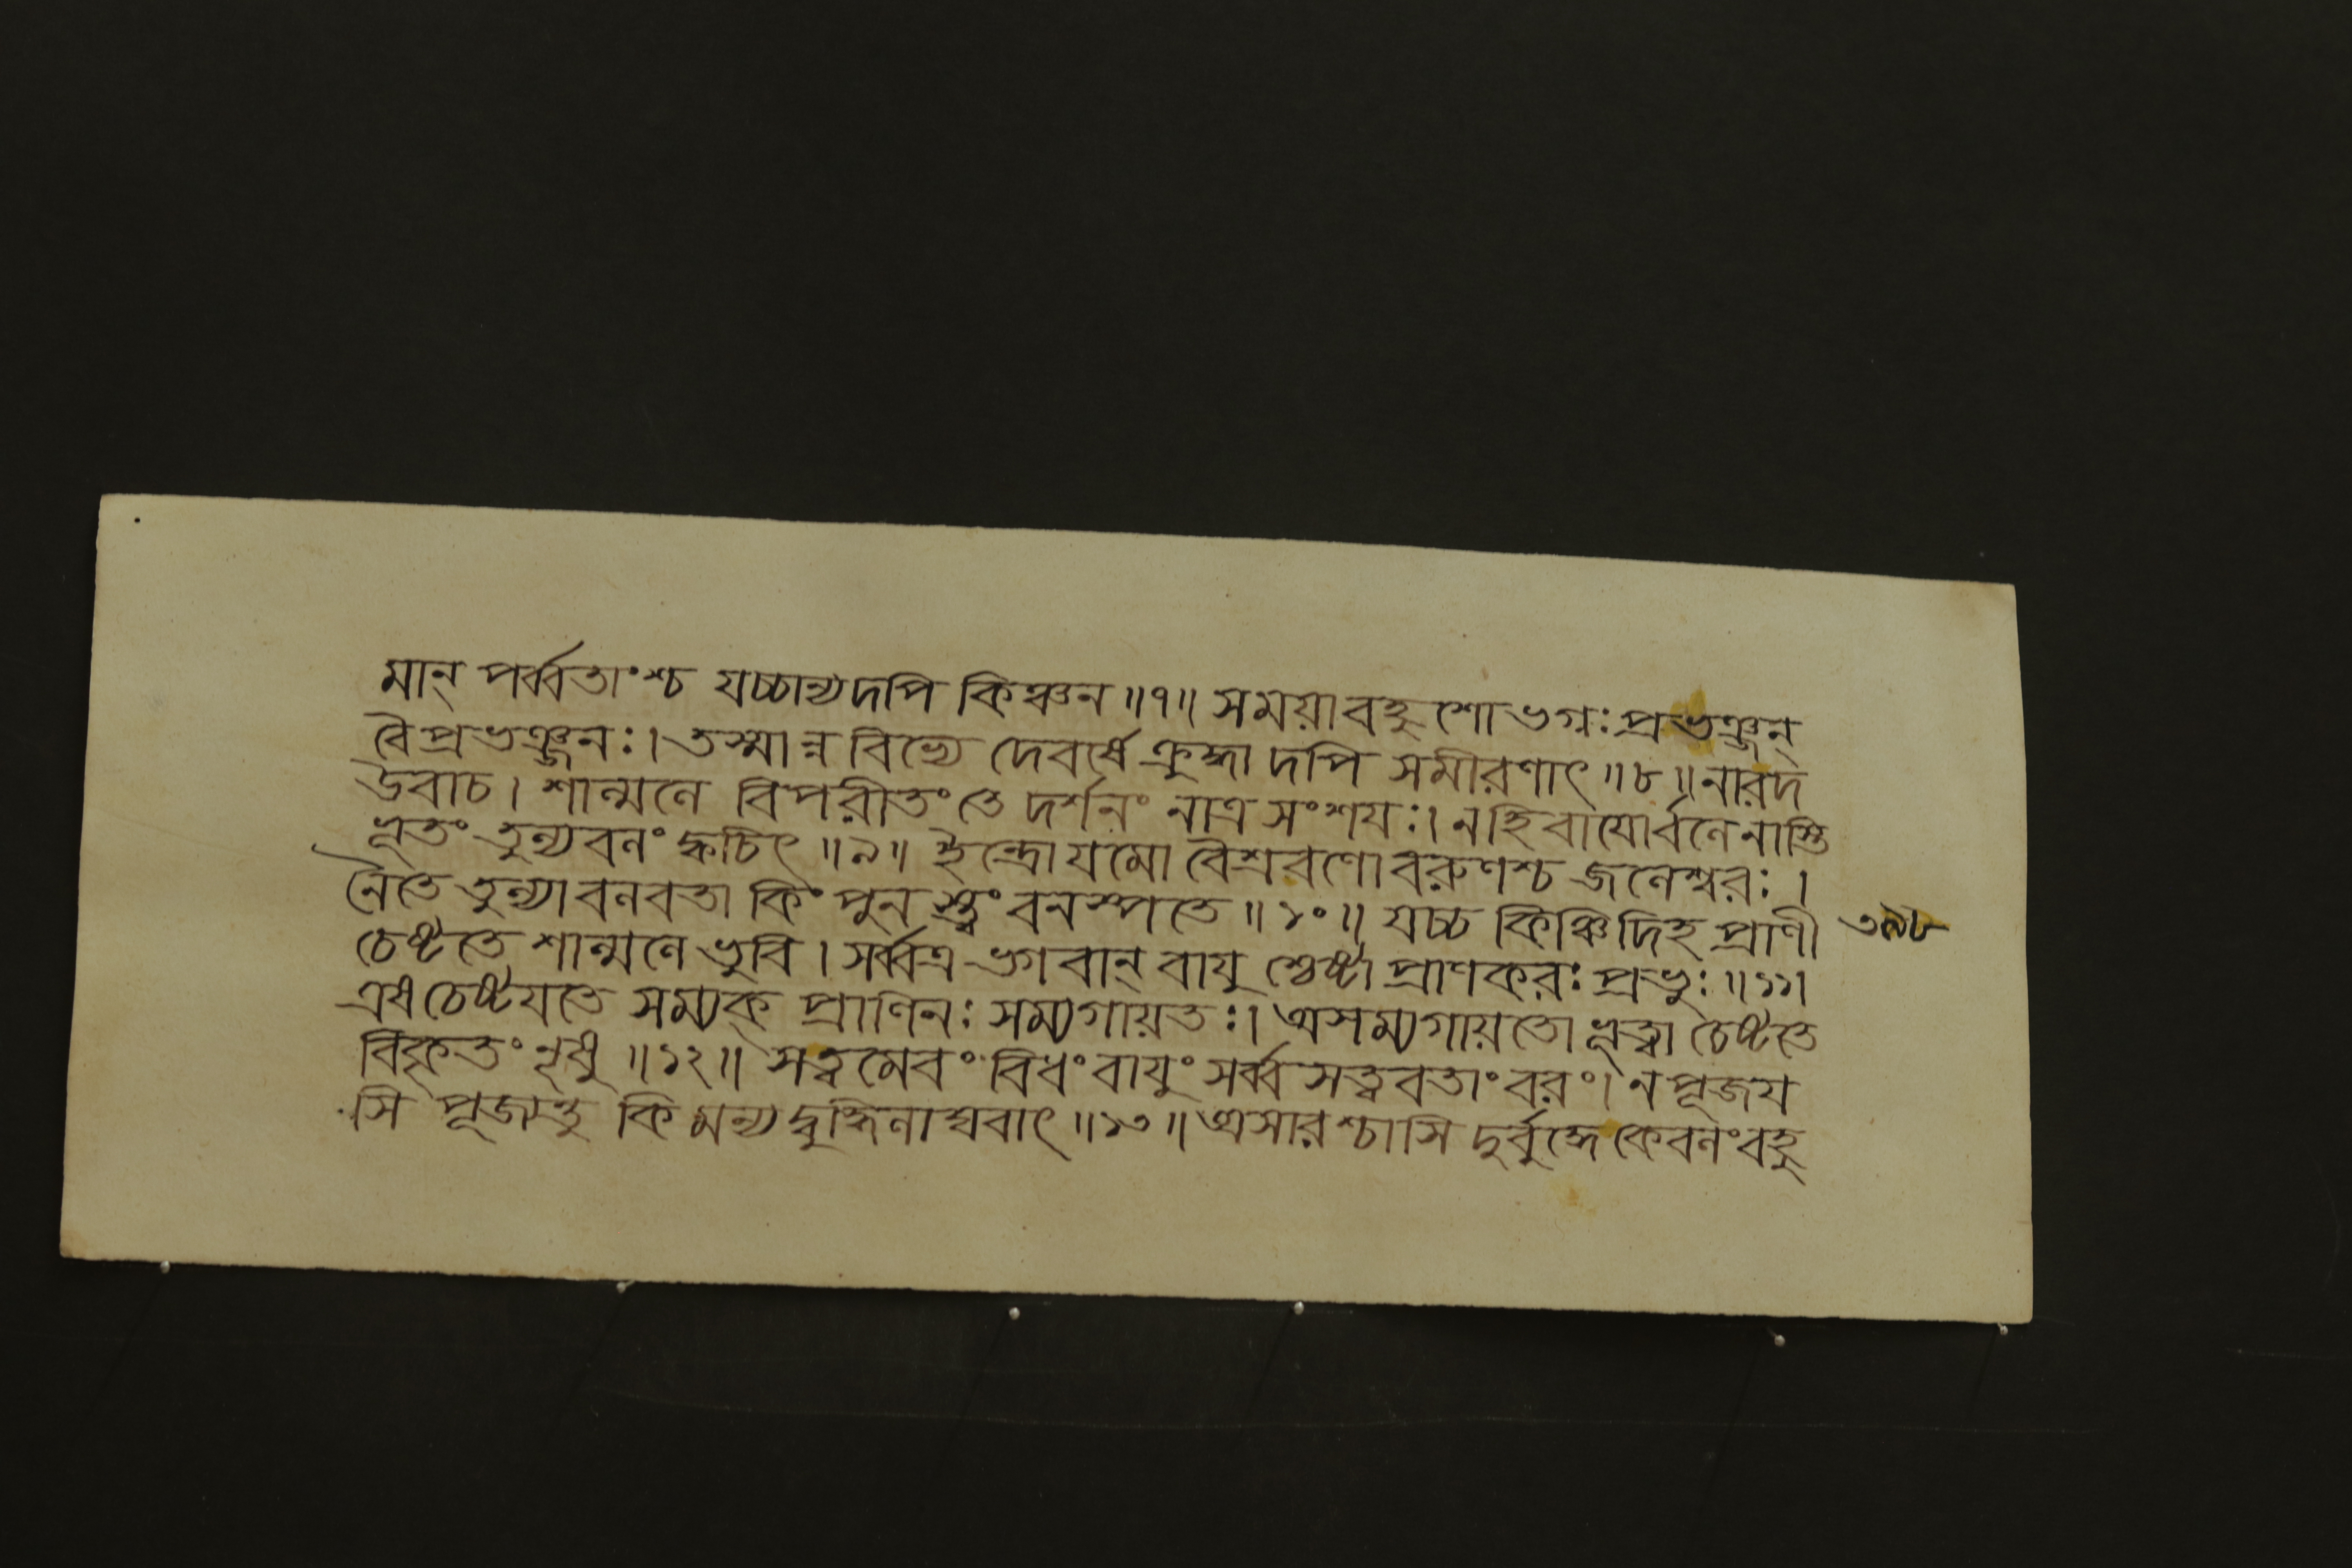 মান্ পর্ব্বতাংশ্চ যচ্চান্যদপি কিঞ্চন ॥৭॥ সময়া বহুশো ভগ্নঃ প্রভঞ্জন্
বৈ প্রভঞ্জনঃ। তস্মান্ন বিভ্যে দেবর্ষে ক্রুদ্ধাদপি সমীরণাৎ ॥৮॥ নারদ
উবাচ। শাল্মলে বিপরীতং তে দর্শনং নাত্র সংশযঃ। নহি বাযোর্বলেনাস্তি
ভূতং তুল্যবলং ক্বচিৎ ॥৯॥ ইন্দ্রো যমো বৈশ্রবণো বরুণশ্চ জলেশ্বরঃ।
নৈতে তুল্যা বলবতা কিং পুনস্ত্বং বনস্পতে ॥১০॥ যচ্চ কিঞ্চিদিহ প্রাণী
চেষ্টতে শাল্মলে ভুবি। সর্ব্বত্র ভগবান্ বাযুশ্চেষ্টা প্রাণকরঃ প্রভুঃ ॥১১।
এষ চেষ্টযতে সম্যক্ প্রাণিনঃ সম্যগায়তঃ। অসম্যগায়তো ভূত্বা চেষ্টতে
বিকৃতং নৃষু ॥১২॥ সত্বমেবং বিধং বাযুং সর্ব্ব সত্ত্ববতাং বরং। ন পূজয
সি পূজ্যন্তু কিমন্যদ্বুদ্ধিলাঘবাৎ ॥১৩॥ অসারশ্চাসি দুর্বুদ্ধে কেবলং বহু
৩৯৮